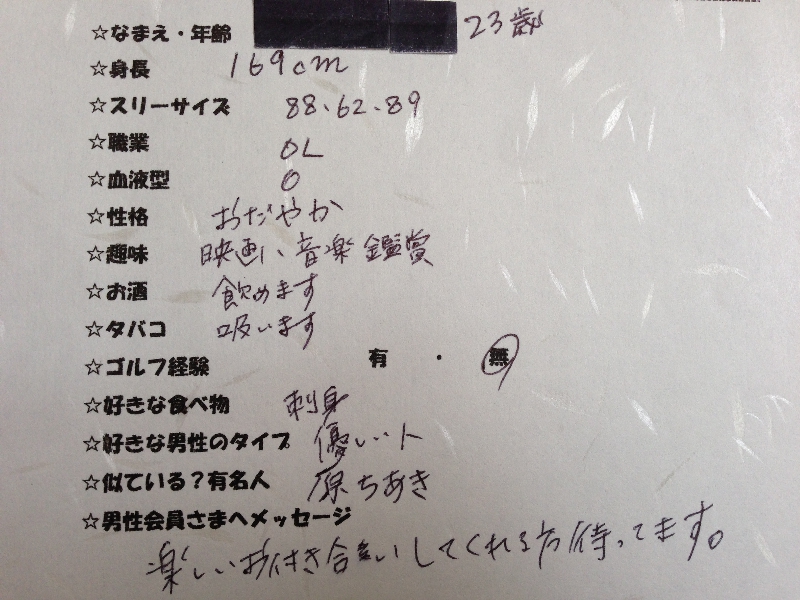 ☆なまえ・年齢 23歳
☆身長 169cm
☆スリーサイズ 88、62、89
☆職業 OL
☆血液型 O
☆性格 おだやか
☆趣味 映画、音楽鑑賞
☆お酒 飲めます
☆タバコ 吸います
☆ゴルフ経験 有 ・ 無
☆好きな食べ物 刺身
☆好きな男性のタイプ 優しい人
☆似ている？有名人 原ちあき
☆男性会員さまへメッセージ
楽しいお付き合いしてくれる方待ってます。